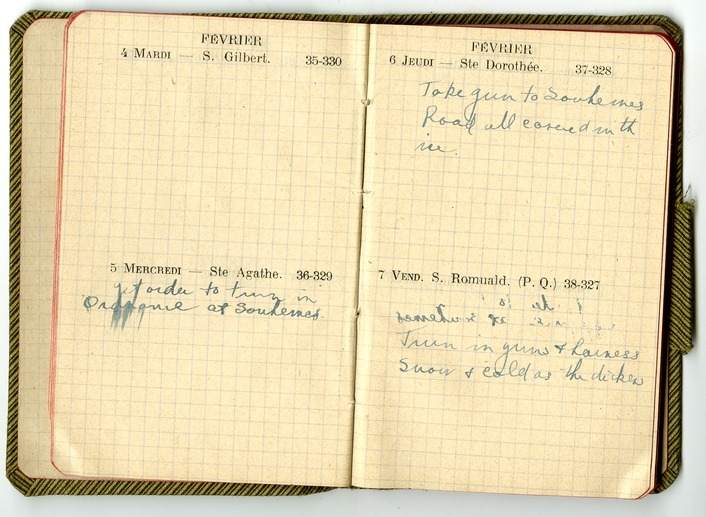 FÉVRIER
4 MARDI — S. Gilbert. 35-330
5 MERCREDI — Ste Agathe. 36-329
get order to turn in
Ordnance at Souhemes.
FÉVRIER
6 JEUDI — Ste Dorothée. 37-328
Take gun to Souhemes
Road all covered with
ice.
7 VEND. S. Romuald. (P. Q.) 38-327
Turn in guns & harness
Snow & cold as the dickens